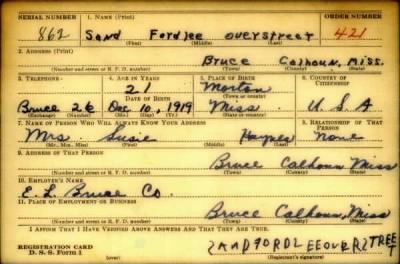 SERIAL NUMBER 1. NAME (Print) ORDER NUMBER
862 Sand Fordlee overstreet 421
(First) (Middle) (Last)
2. ADDRESS (Print)
Bruce Calhoun, Miss.
(Number and street or R. F. D. number) (Town) (County) (State)
3. TELEPHONE 4. AGE IN YEARS 5. PLACE OF BIRTH 6. COUNTRY OF CITIZENSHIP
21 Morton
DATE OF BIRTH (Town or county)
Bruce 26 Dec. 10, 1919 Miss. U.S.A
(Exchange) (No.) (Mo.) (Day) (Yr.) (State or country)
7. NAME OF PERSON WHO WILL ALWAYS KNOW YOUR ADDRESS 8. RELATIONSHIP OF THAT PERSON
Mrs Susie Haynes None
(Mr., Mrs., Miss) (First) (Middle) (Last)
9. ADDRESS OF THAT PERSON
Bruce Calhoun Miss
(Number and street or R. F. D. number) (Town) (County) (State)
10. EMPLOYER'S NAME
E. L. Bruce Co.
11. PLACE OF EMPLOYMENT OR BUSINESS
Bruce Calhoun, Miss
(Number and street or R. F. D. number) (Town) (County) (State)
I AFFIRM THAT I HAVE VERIFIED ABOVE ANSWERS AND THAT THEY ARE TRUE.
REGISTRATION CARD
D. S. S. Form 1 (over) (Registrant's signature)